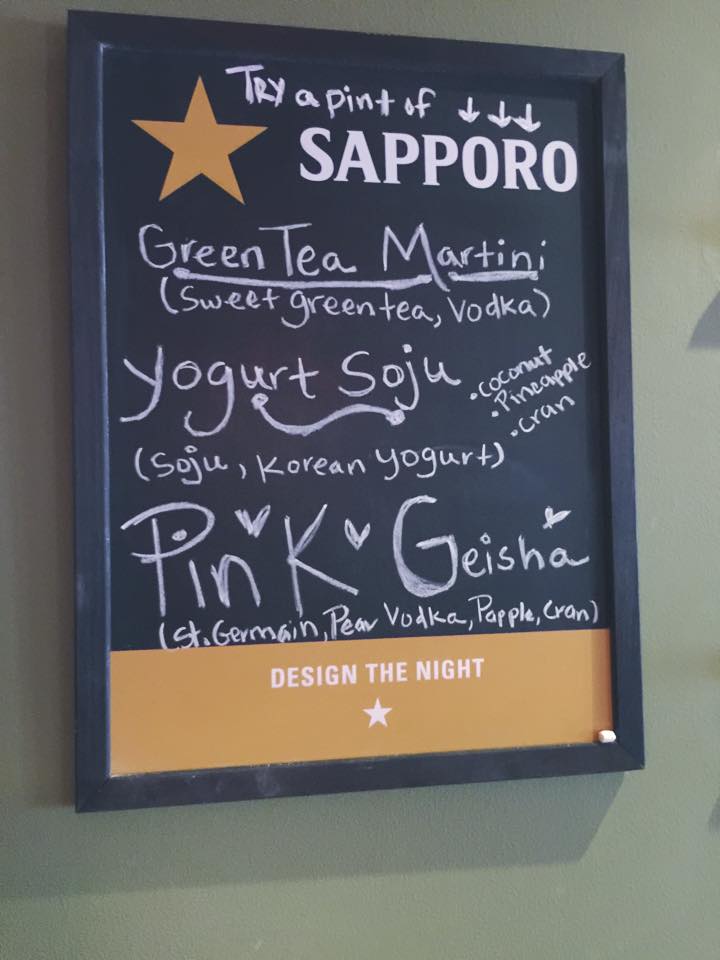 Try a pint of ↓↓↓
SAPPORO
Green Tea Martini
(Sweet green tea, Vodka)
Yogurt Soju
• coconut
• Pineapple
• cran
(Soju, Korean yogurt)
Pink Geisha
(St. Germain, Pear Vodka, Papple, Cran)
DESIGN THE NIGHT